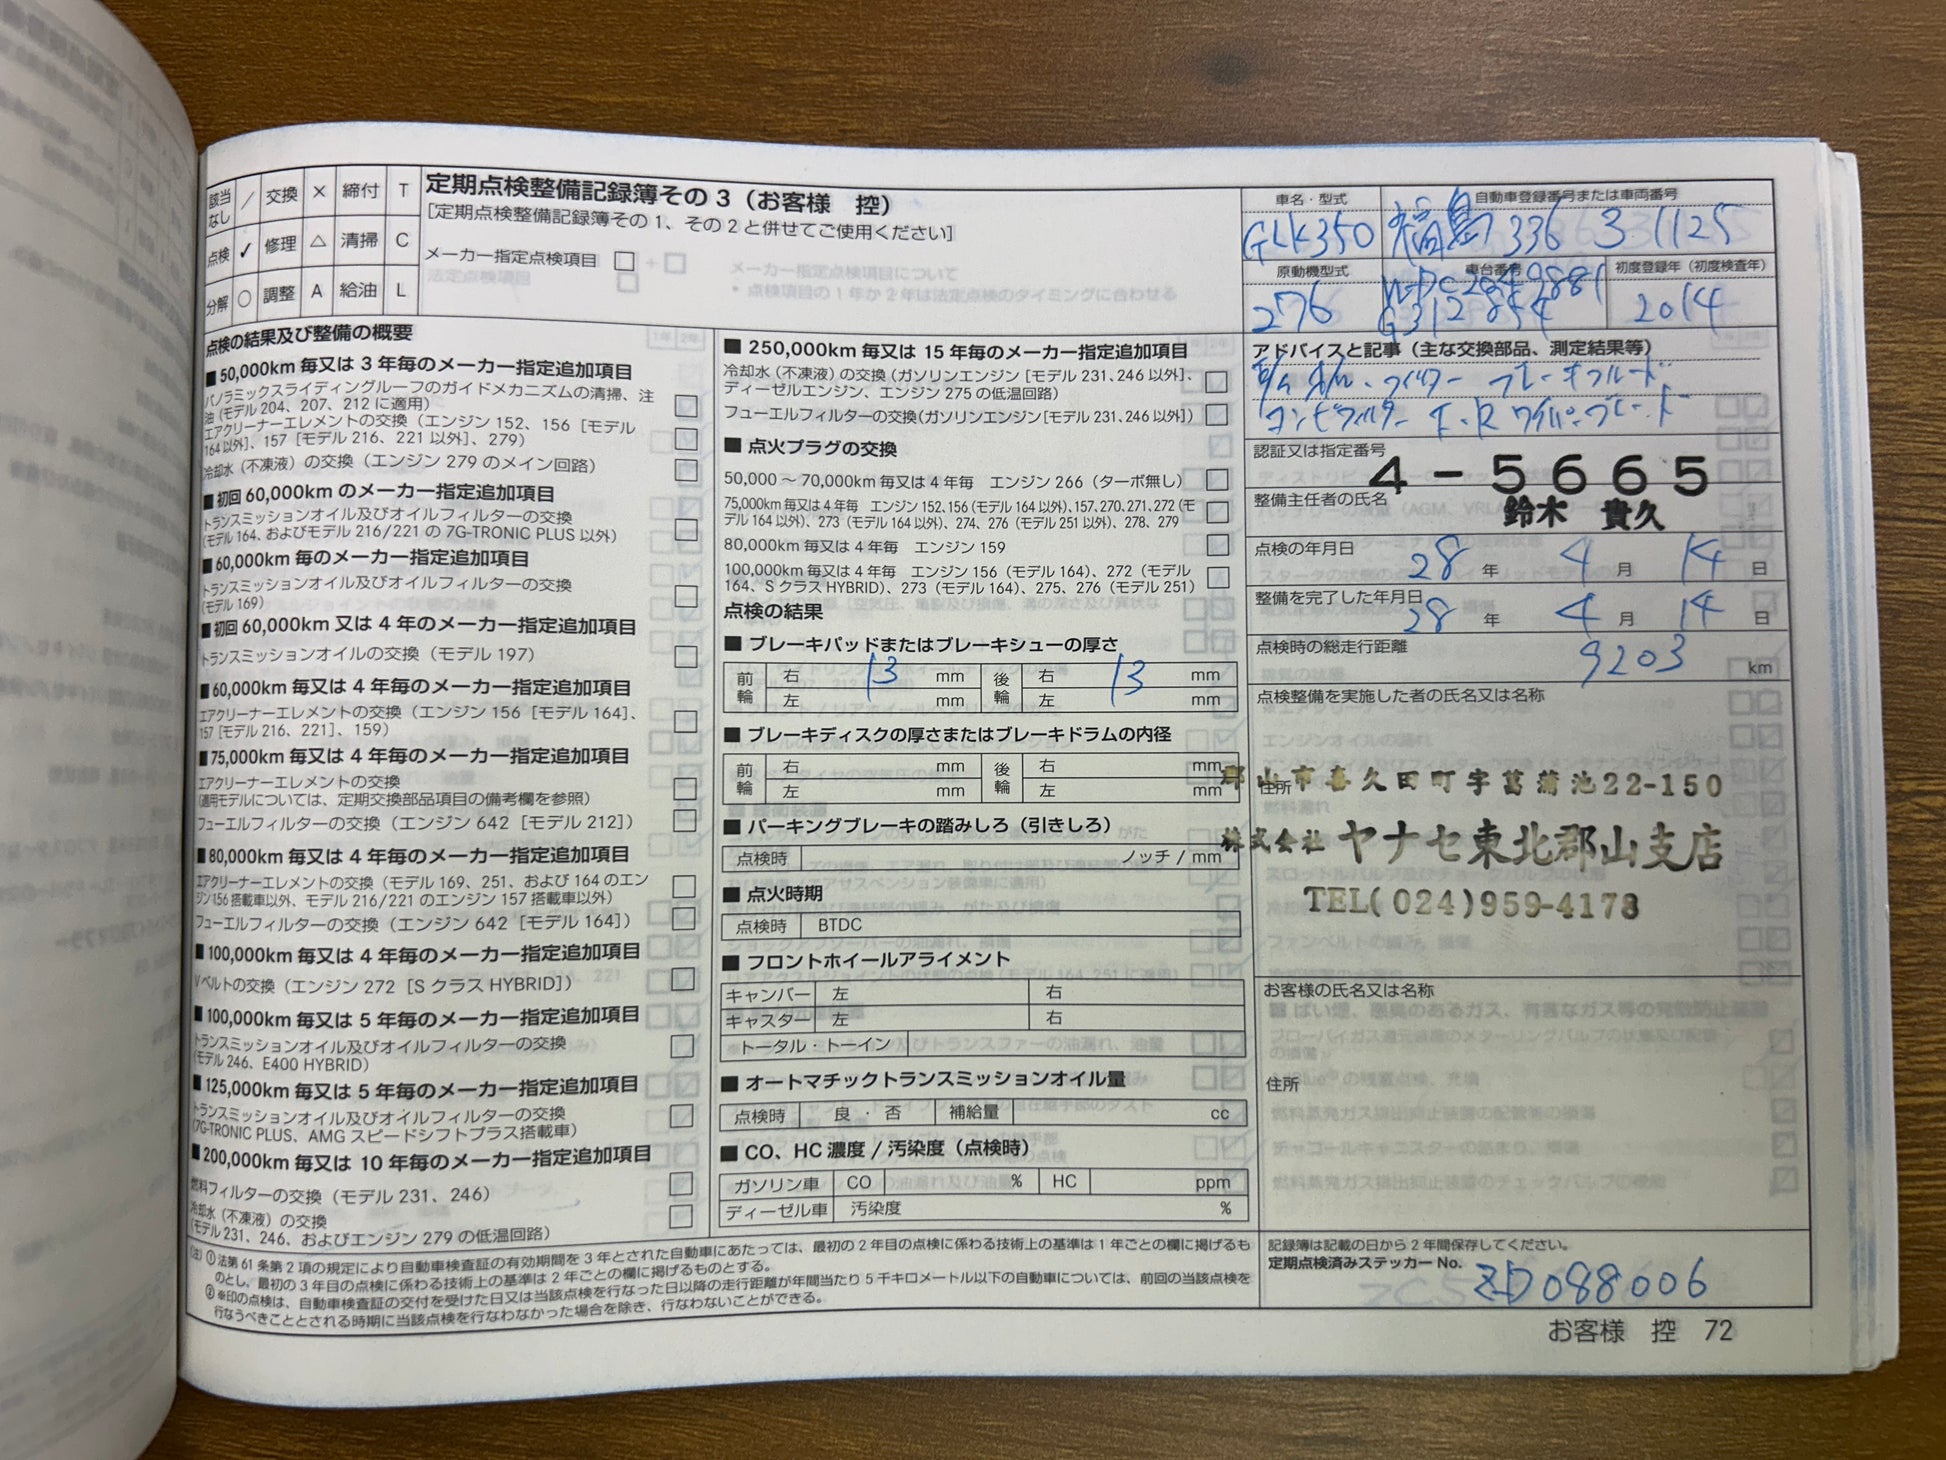 該当なし ／ 交換 × 締付 T
点検 ✓ 修理 △ 清掃 C
分解 ○ 調整 A 給油 L
定期点検整備記録簿その3（お客様　控）
［定期点検整備記録簿その1、その2と併せてご使用ください］
メーカー指定点検項目 □
点検の結果及び整備の概要
■50,000km 毎又は 3 年毎のメーカー指定追加項目
パノラミックスライディングルーフのガイドメカニズムの清掃、注
油（モデル 204、207、212 に適用） □
エアクリーナーエレメントの交換（エンジン 152、156［モデル
164 以外］、157［モデル 216、221 以外］、279） □
冷却水（不凍液）の交換（エンジン 279 のメイン回路） □
■初回 60,000km のメーカー指定追加項目
トランスミッションオイル及びオイルフィルターの交換
（モデル 164、およびモデル 216/221 の 7G-TRONIC PLUS 以外） □
■60,000km 毎のメーカー指定追加項目
トランスミッションオイル及びオイルフィルターの交換
（モデル 169） □
■初回 60,000km 又は 4 年のメーカー指定追加項目
トランスミッションオイルの交換（モデル 197） □
■60,000km 毎又は 4 年毎のメーカー指定追加項目
エアクリーナーエレメントの交換（エンジン 156［モデル 164］、
157［モデル 216、221］、159） □
■75,000km 毎又は 4 年毎のメーカー指定追加項目
エアクリーナーエレメントの交換
（適用モデルについては、定期交換部品項目の備考欄を参照） □
フューエルフィルターの交換（エンジン 642［モデル 212］） □
■80,000km 毎又は 4 年毎のメーカー指定追加項目
エアクリーナーエレメントの交換（モデル 169、251、および 164 のエン
ジン 156 搭載車以外、モデル 216/221 のエンジン 157 搭載車以外） □
フューエルフィルターの交換（エンジン 642［モデル 164］） □
■100,000km 毎又は 4 年毎のメーカー指定追加項目
Vベルトの交換（エンジン 272［S クラス HYBRID］） □
■100,000km 毎又は 5 年毎のメーカー指定追加項目
トランスミッションオイル及びオイルフィルターの交換
（モデル 246、E400 HYBRID） □
■125,000km 毎又は 5 年毎のメーカー指定追加項目
トランスミッションオイル及びオイルフィルターの交換
（7G-TRONIC PLUS、AMG スピードシフトプラス搭載車） □
■200,000km 毎又は 10 年毎のメーカー指定追加項目
燃料フィルターの交換（モデル 231、246） □
冷却水（不凍液）の交換
（モデル 231、246、およびエンジン 279 の低温回路） □
■250,000km 毎又は 15 年毎のメーカー指定追加項目
冷却水（不凍液）の交換（ガソリンエンジン［モデル 231、246 以外］、
ディーゼルエンジン、エンジン 275 の低温回路） □
フューエルフィルターの交換（ガソリンエンジン［モデル 231、246 以外］） □
■点火プラグの交換
50,000 ～ 70,000km 毎又は 4 年毎　エンジン 266（ターボ無し） □
75,000km 毎又は 4 年毎　エンジン 152、156（モデル 164 以外）、157、270、271、272（モ
デル 164 以外）、273（モデル 164 以外）、274、276（モデル 251 以外）、278、279 □
80,000km 毎又は 4 年毎　エンジン 159 □
100,000km 毎又は 4 年毎　エンジン 156（モデル 164）、272（モデル
164、S クラス HYBRID）、273（モデル 164）、275、276（モデル 251） □
点検の結果
■ブレーキパッドまたはブレーキシューの厚さ
前輪 右 13 mm 後輪 右 13 mm
左 mm 左 mm
■ブレーキディスクの厚さまたはブレーキドラムの内径
前輪 右 mm 後輪 右 mm
左 mm 左 mm
■パーキングブレーキの踏みしろ（引きしろ）
点検時 ノッチ / mm
■点火時期
点検時 BTDC
■フロントホイールアライメント
キャンバー 左 右
キャスター 左 右
トータル・トーイン
■オートマチックトランスミッションオイル量
点検時 良・否 補給量 cc
■CO、HC 濃度 / 汚染度（点検時）
ガソリン車 CO % HC ppm
ディーゼル車 汚染度 %
車名・型式 自動車登録番号または車両番号
GLK350 福島 336 3 1125
原動機型式 車台番号 初度登録年（初度検査年）
276 WDC2049881 2014
G312854
アドバイスと記事（主な交換部品、測定結果等）
フィルター ブレーキフルード
コンビフィルター F・R ワイパーブレード
認証又は指定番号
4-5665
整備主任者の氏名
鈴木　貴久
点検の年月日 28 年 4 月 14 日
整備を完了した年月日 28 年 4 月 14 日
点検時の総走行距離 9203 km
点検整備を実施した者の氏名又は名称
住所
郡山市喜久田町字菖蒲池22-150
株式会社 ヤナセ東北郡山支店
TEL(024)959-4178
お客様の氏名又は名称
住所
記録簿は記載の日から 2 年間保存してください。
定期点検済みステッカー No. ZD088006
（注）① 法第 61 条第 2 項の規定により自動車検査証の有効期間を 3 年とされた自動車にあたっては、最初の 2 年目の点検に係わる技術上の基準は 1 年ごとの欄に掲げるも
のとし、最初の 3 年目の点検に係わる技術上の基準は 2 年ごとの欄に掲げるものとする。
② ※印の点検は、自動車検査証の交付を受けた日又は当該点検を行なった日以降の走行距離が年間当たり 5 千キロメートル以下の自動車については、前回の当該点検を
行なうべきこととされる時期に当該点検を行なわなかった場合を除き、行なわないことができる。
お客様　控　72